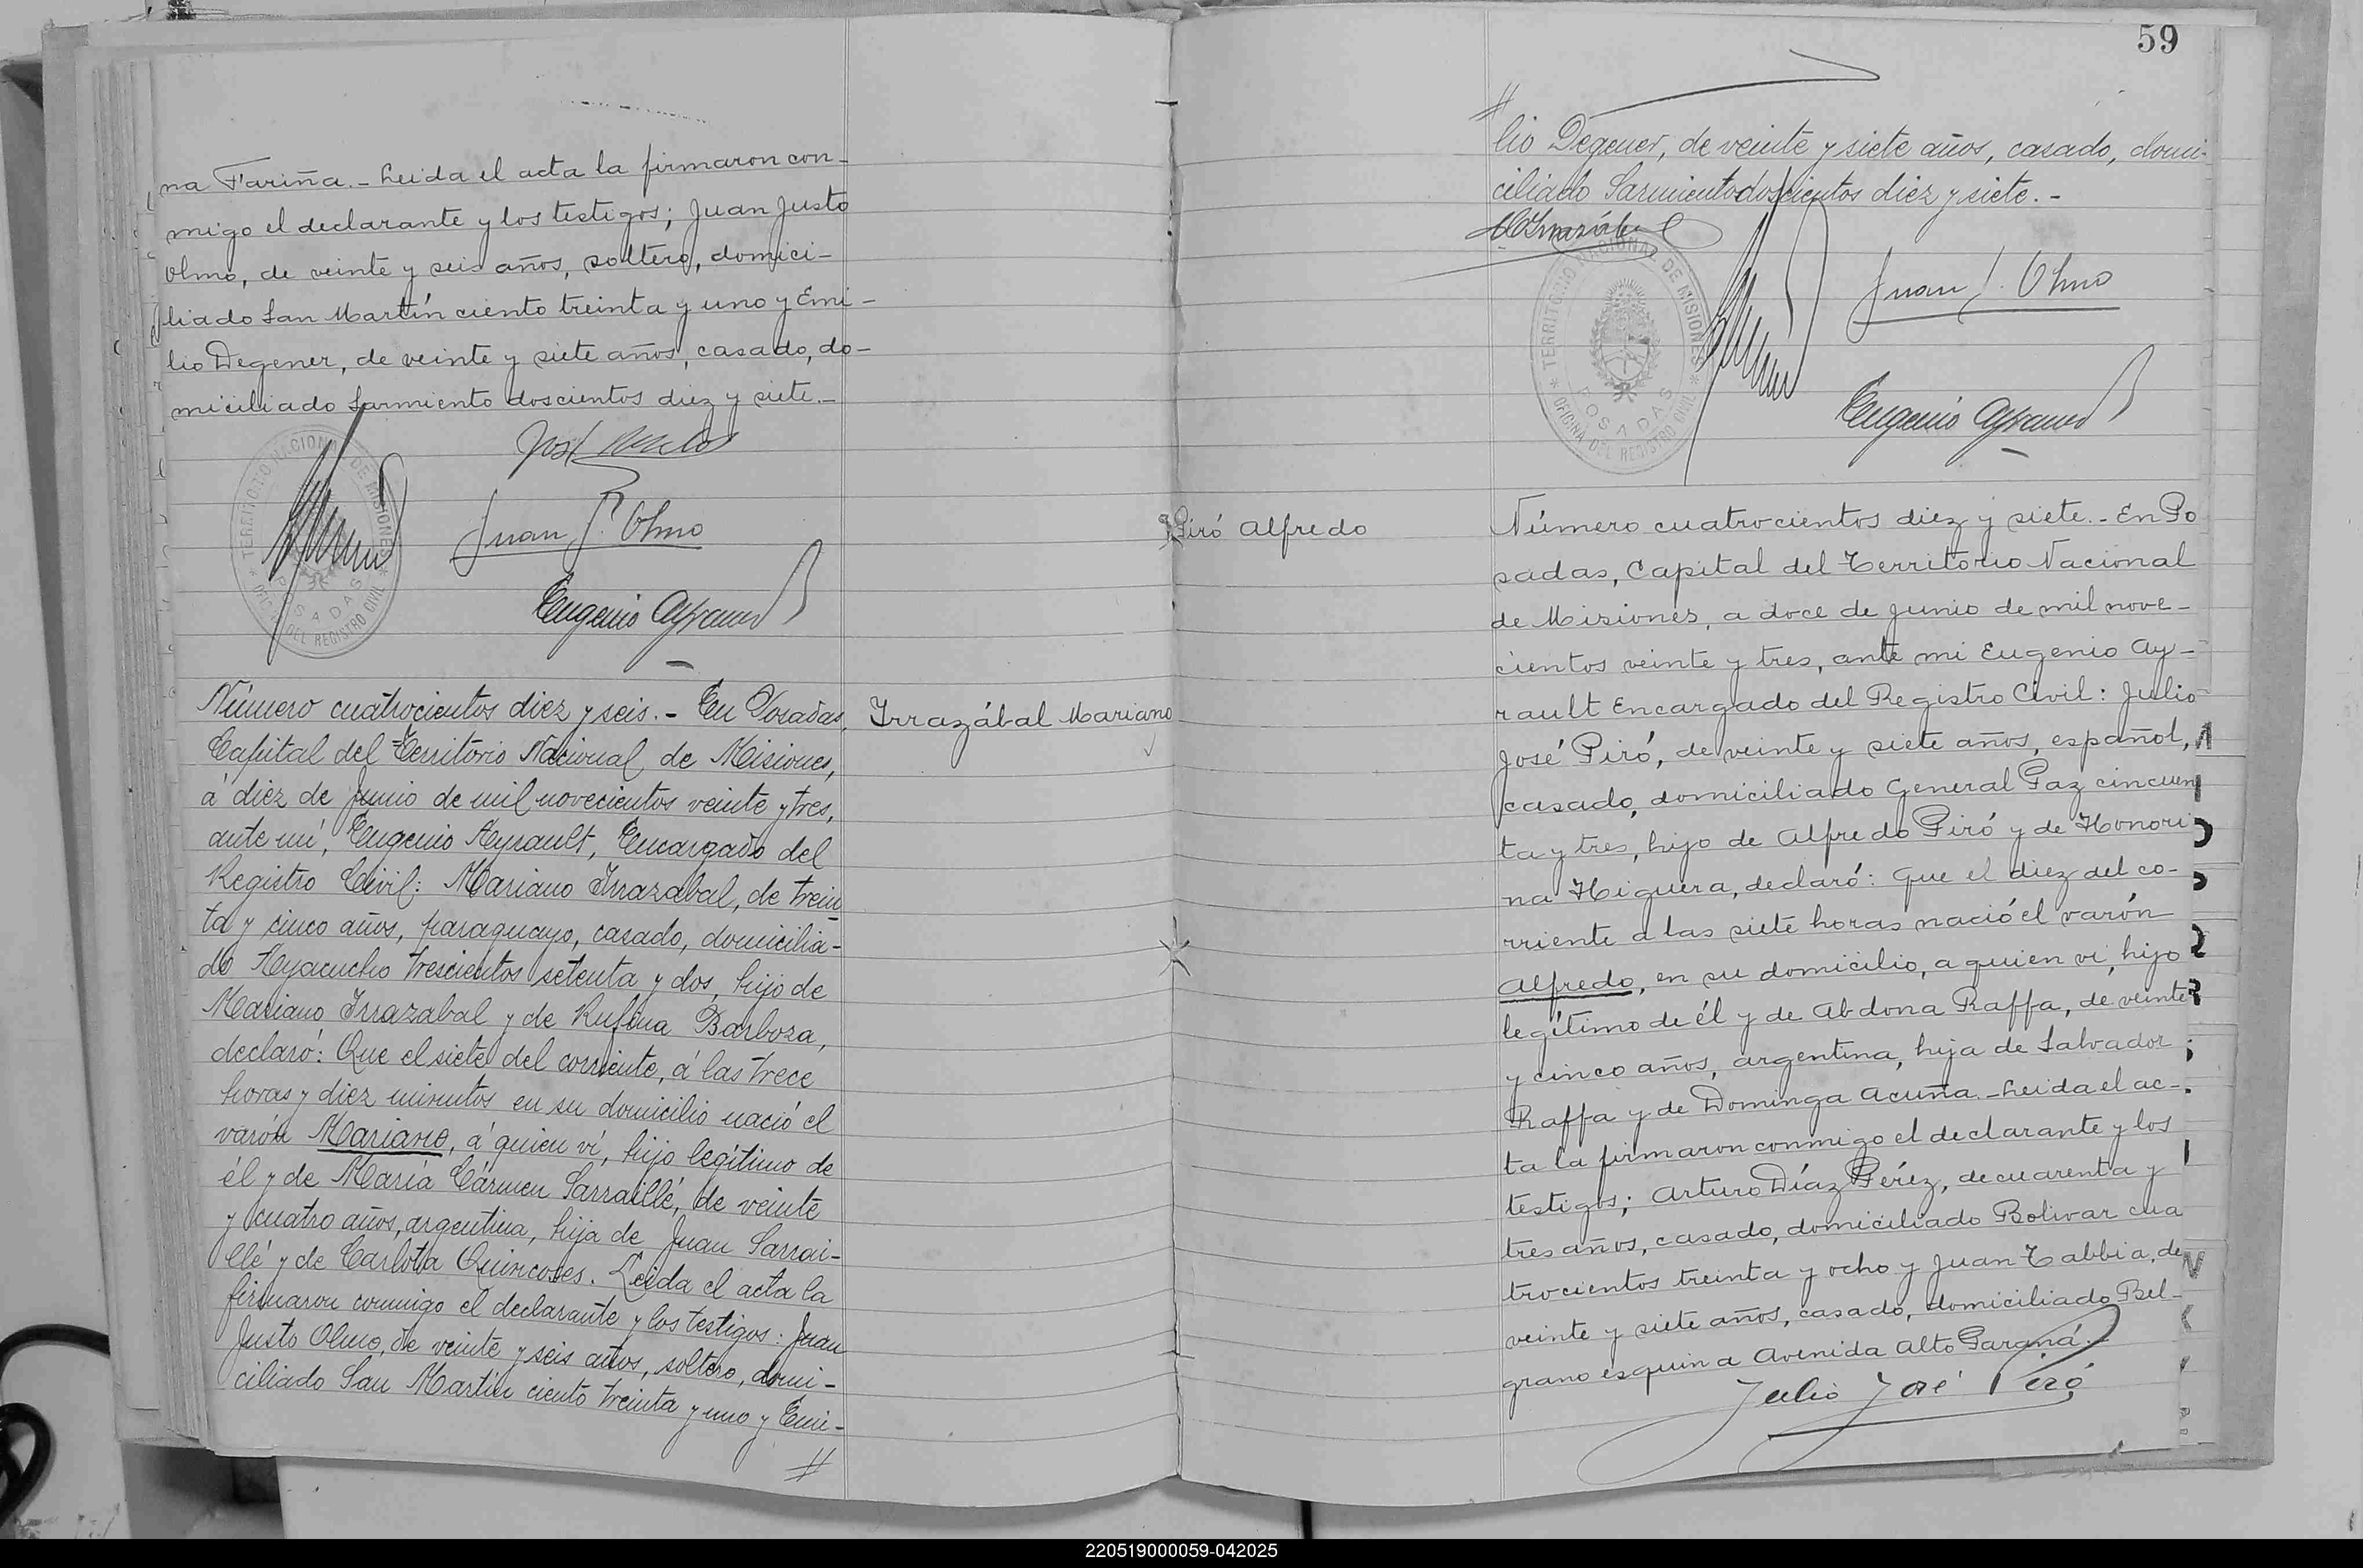 na Fariña.- Leida el acta la firmaron con-
migo el declarante y los testigos; Juan Justo
Olmo, de veinte y seis años, soltero, domici-
liado San Martín ciento treinta y uno y Emi-
lio Degener, de veinte y siete años, casado, do-
miciliado Sarmiento doscientos diez y siete.-
TERRITORIO NACIONAL DE MISIONES
POSADAS
OFICINA DEL REGISTRO CIVIL
Juan J. Olmo
Eugenio Ayrault
Número cuatrocientos diez y seis.- En Posadas,
Irrazábal Mariano
Capital del Territorio Nacional de Misiones,
á diez de Junio de mil novecientos veinte y tres,
ante mí, Eugenio Ayrault, Encargado del
Registro Civil: Mariano Irrazabal, de trein
ta y cinco años, paraguayo, casado, domicilia-
do Ayacucho trescientos setenta y dos, hijo de
Mariano Irrazabal y de Rufina Barboza,
declaró: Que el siete del corriente, á las trece
horas y diez minutos en su domicilio nació el
varón Mariano, á quien ví, hijo legítimo de
él y de María Cármen Sarraillé, de veinte
y cuatro años, argentina, hija de Juan Sarrai-
llé y de Carlota Quincoses. Leida el acta la
firmaron conmigo el declarante y los testigos: Juan
Justo Olmo, de veinte y seis años, soltero, domi-
ciliado San Martin ciento treinta y uno y Emi-
//
59
//
lio Degener, de veinte y siete años, casado, domi-
ciliado Sarmiento doscientos diez y siete.-
MIrrazábal
TERRITORIO NACIONAL DE MISIONES
POSADAS
OFICINA DEL REGISTRO CIVIL
Juan J. Olmo
Eugenio Ayrault
Piró Alfredo
Número cuatrocientos diez y siete.- En Po
sadas, Capital del Territorio Nacional
de Misiones, a doce de Junio de mil nove-
cientos veinte y tres, ante mi Eugenio Ay-
rault Encargado del Registro Civil: Julio
José Piró, de veinte y siete años, español,
casado, domiciliado General Paz cincuen
ta y tres, hijo de Alfredo Piró y de Honori
na Higuera, declaró: Que el diez del co-
rriente a las siete horas nació el varón
Alfredo, en su domicilio, a quien vi, hijo
legítimo de él y de Abdona Raffa, de veinte
y cinco años, argentina, hija de Salvador
Raffa y de Dominga Acuña.- Leida el ac-
ta la firmaron conmigo el declarante y los
testigos; Arturo Díaz Pérez, de cuarenta y
tres años, casado, domiciliado Bolivar cua
trocientos treinta y ocho y Juan Tabbia, de
veinte y siete años, casado, domiciliado Bel-
grano esquina Avenida Alto Paraná.-
Julio José Piró
220519000059-042025